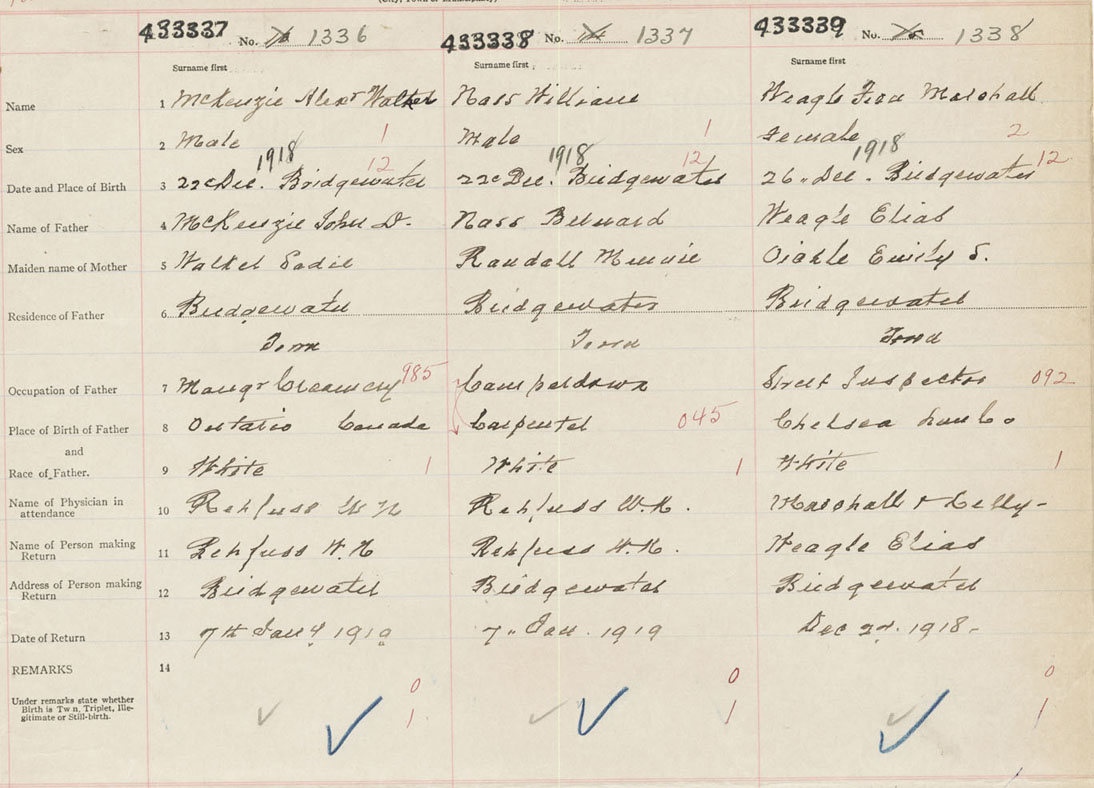 (City, Town or Municipality)
433337 No. 1336 433338 No. 1337 433339 No. 1338
Surname first Surname first Surname first
Name 1 McKenzie Alexr Walker Nass William Weagle Marshall
Sex 2 Male 1 Male 1 Female 2
1918 12 1918 12 1918 12
Date and Place of Birth 3 22d Dec. Bridgewater 22d Dec. Bridgewater 26" Dec. Bridgewater
Name of Father 4 McKenzie John D. Nass Bernard Weagle Elias
Maiden name of Mother 5 Walker Sadie Randall Minnie Oickle Emily S.
Residence of Father 6 Bridgewater Bridgewater Bridgewater
Town Town Town
Occupation of Father 7 Mangr Creamery 985 Camperdown Street Inspector 092
Place of Birth of Father 8 Ontario Canada Carpenter 045 Chelsea Lun Co
and
Race of Father. 9 White 1 White 1 White 1
Name of Physician in attendance 10 Rehfuss W. N Rehfuss W. N. Marshall &
Name of Person making Return 11 Rehfuss W. N Rehfuss W. N. Weagle Elias
Address of Person making Return 12 Bridgewater Bridgewater Bridgewater
Date of Return 13 7th Jany 1919 7" Jan. 1919 Dec 1918-
REMARKS 14
0 0 0
Under remarks state whether Birth is Twin, Triplet, Illegitimate or Still-birth.
1 1 1